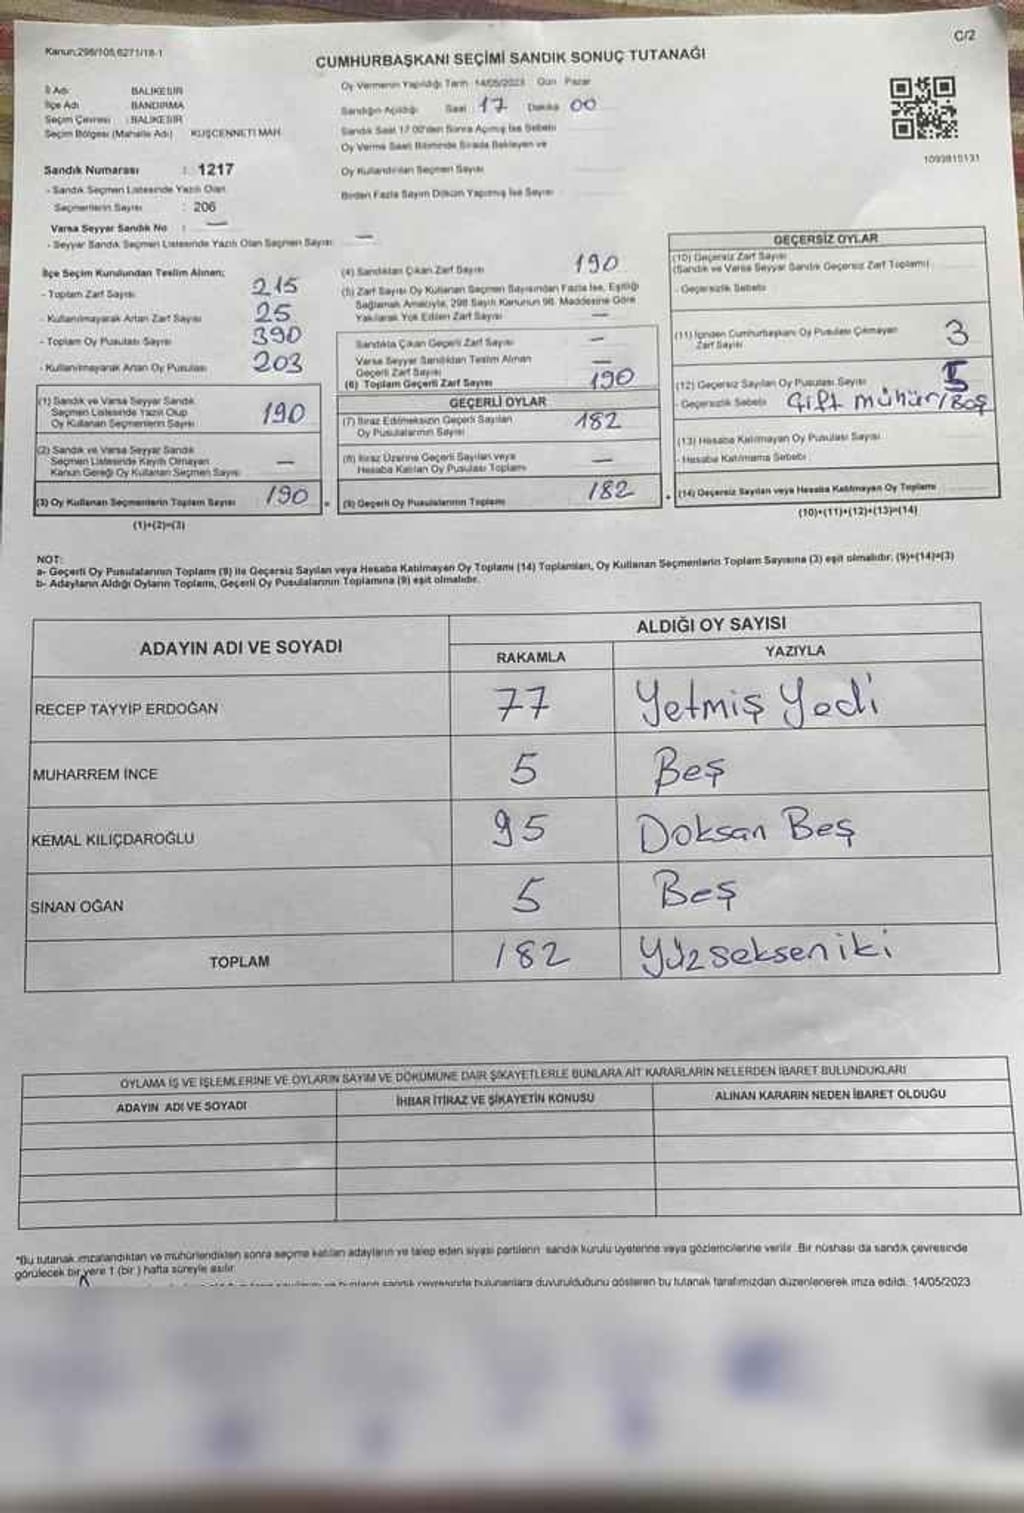 Kanun:298/105,6271/18-1
C/2
CUMHURBAŞKANI SEÇİMİ SANDIK SONUÇ TUTANAĞI
İl Adı BALIKESİR
İlçe Adı BANDIRMA
Seçim Çevresi : BALIKESİR
Seçim Bölgesi (Mahalle Adı) KUŞCENNETİ MAH.
Sandık Numarası : 1217
- Sandık Seçmen Listesinde Yazılı Olan
Seçmenlerin Sayısı : 206
Varsa Seyyar Sandık No : —
- Seyyar Sandık Seçmen Listesinde Yazılı Olan Seçmen Sayısı —
Oy Vermenin Yapıldığı Tarih 14/05/2023 Gün Pazar
Sandığın Açıldığı Saat 17 Dakika 00
Sandık Saat 17.00'den Sonra Açılmış İse Sebebi
Oy Verme Saati Bitiminde Sırada Bekleyen ve
Oy Kullandırılan Seçmen Sayısı
Birden Fazla Sayım Döküm Yapılmış İse Sayısı
1093815131
İlçe Seçim Kurulundan Teslim Alınan;
- Toplam Zarf Sayısı 215
- Kullanılmayarak Artan Zarf Sayısı 25
- Toplam Oy Pusulası Sayısı 390
- Kullanılmayarak Artan Oy Pusulası 203
(1) Sandık ve Varsa Seyyar Sandık
Seçmen Listesinde Yazılı Olup
Oy Kullanan Seçmenlerin Sayısı 190
(2) Sandık ve Varsa Seyyar Sandık
Seçmen Listesinde Kayıtlı Olmayan
Kanun Gereği Oy Kullanan Seçmen Sayısı —
(3) Oy Kullanan Seçmenlerin Toplam Sayısı 190
(1)+(2)=(3)
(4) Sandıktan Çıkan Zarf Sayısı 190
(5) Zarf Sayısı Oy Kullanan Seçmen Sayısından Fazla İse, Eşitliği
Sağlamak Amacıyla, 298 Sayılı Kanunun 98. Maddesine Göre
Yakılarak Yok Edilen Zarf Sayısı —
Sandıkta Çıkan Geçerli Zarf Sayısı —
Varsa Seyyar Sandıktan Teslim Alınan
Geçerli Zarf Sayısı —
(6) Toplam Geçerli Zarf Sayısı 190
GEÇERLİ OYLAR
(7) İtiraz Edilmeksizin Geçerli Sayılan
Oy Pusulalarının Sayısı 182
(8) İtiraz Üzerine Geçerli Sayılan veya
Hesaba Katılan Oy Pusulası Toplamı —
(9) Geçerli Oy Pusulalarının Toplamı 182
GEÇERSİZ OYLAR
(10) Geçersiz Zarf Sayısı
(Sandık ve Varsa Seyyar Sandık Geçersiz Zarf Toplamı)
- Geçersizlik Sebebi
(11) İçinden Cumhurbaşkanı Oy Pusulası Çıkmayan
Zarf Sayısı 3
(12) Geçersiz Sayılan Oy Pusulası Sayısı 5
- Geçersizlik Sebebi Çift mühür/Boş
(13) Hesaba Katılmayan Oy Pusulası Sayısı
- Hesaba Katılmama Sebebi
(14) Geçersiz Sayılan veya Hesaba Katılmayan Oy Toplamı
(10)+(11)+(12)+(13)=(14)
NOT:
a- Geçerli Oy Pusulalarının Toplamı (9) ile Geçersiz Sayılan veya Hesaba Katılmayan Oy Toplamı (14) Toplamları, Oy Kullanan Seçmenlerin Toplam Sayısına (3) eşit olmalıdır. (9)+(14)=(3)
b- Adayların Aldığı Oyların Toplamı, Geçerli Oy Pusulalarının Toplamına (9) eşit olmalıdır.
ADAYIN ADI VE SOYADI
ALDIĞI OY SAYISI
RAKAMLA YAZIYLA
RECEP TAYYİP ERDOĞAN 77 Yetmiş Yedi
MUHARREM İNCE 5 Beş
KEMAL KILIÇDAROĞLU 95 Doksan Beş
SİNAN OĞAN 5 Beş
TOPLAM 182 Yüzsekseniki
OYLAMA İŞ VE İŞLEMLERİNE VE OYLARIN SAYIM VE DÖKÜMÜNE DAİR ŞİKAYETLERLE BUNLARA AİT KARARLARIN NELERDEN İBARET BULUNDUKLARI
ADAYIN ADI VE SOYADI İHBAR İTİRAZ VE ŞİKAYETİN KONUSU ALINAN KARARIN NEDEN İBARET OLDUĞU
*Bu tutanak imzalandıktan ve mühürlendikten sonra seçime katılan adayların ve talep eden siyasi partilerin sandık kurulu üyelerine veya gözlemcilerine verilir. Bir nüshası da sandık çevresinde
görülecek bir yere 1 (bir) hafta süreyle asılır.
sandık çevresinde bulunanlara duyurulduğunu gösteren bu tutanak tarafımızdan düzenlenerek imza edildi. 14/05/2023